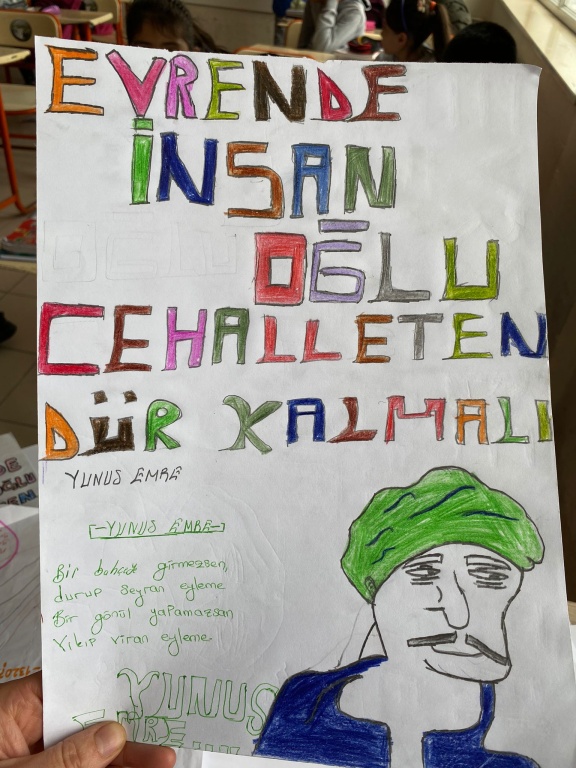 EVRENDE
İNSAN
OĞLU
CEHALLETEN
DÜR KALMALI
YUNUS EMRE
[-YUNUS EMRE-]
Bir bahçeye girmezsen,
durup seyran eyleme
Bir gönül yapamazsan
Yıkıp viran eyleme
YUNUS
EMRE